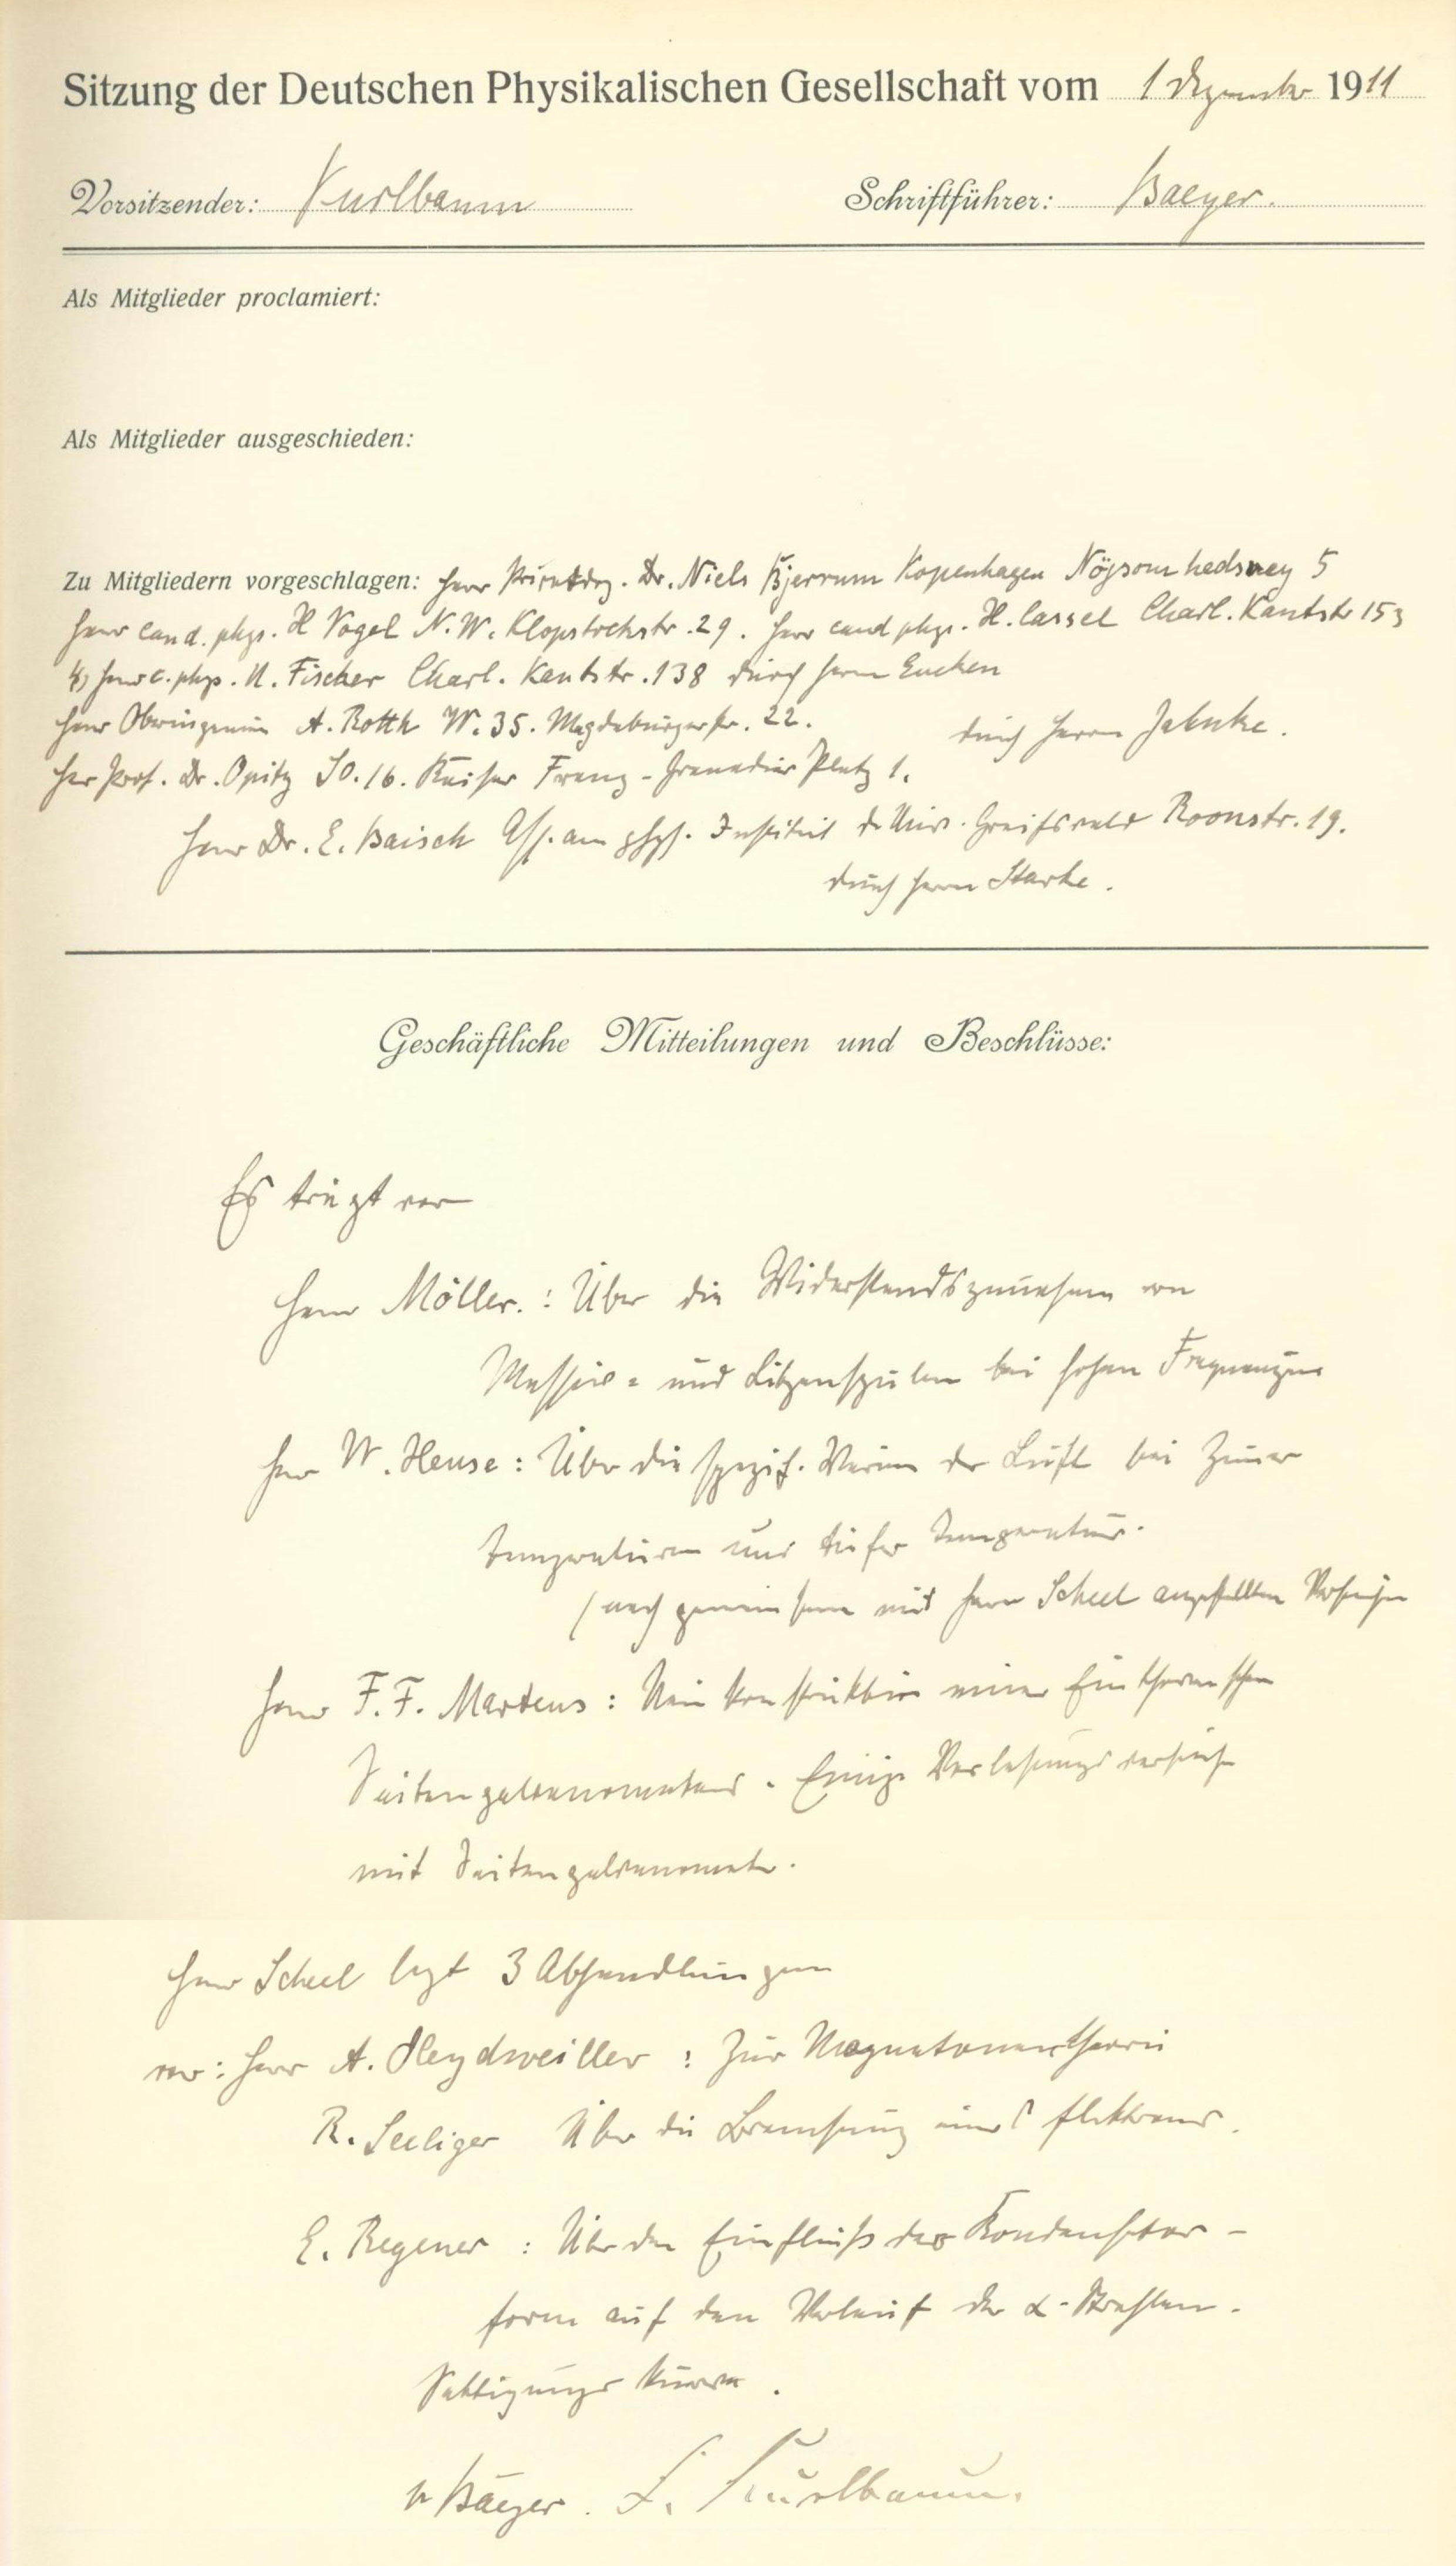 Sitzung der Deutschen Physikalischen Gesellschaft vom 1 Dezember 1911
Vorsitzender: Kurlbaum Schriftführer: Baeyer.
Als Mitglieder proclamiert:
Als Mitglieder ausgeschieden:
Zu Mitgliedern vorgeschlagen: Herr Privatdoz. Dr. Niels Bjerrum Kopenhagen Nöjsomhedsvey 5
Herr cand. phys. H Vogel N.W. Klopstockstr. 29. Herr cand phys. H. Cassel Charl. Kantstr 153
Herr c. phys. U. Fischer Charl. Kantstr. 138 durch Herrn Eucken
Herr Oberingenieur A. Rotth W. 35. Magdeburgerstr. 22. durch Herrn Jahnke.
Herr Prof. Dr. Opitz SO. 16. Kaiser Franz-Grenadier Platz 1.
Herr Dr. E. Baisch Ass. am phys. Institut d. Univ. Greifswald Roonstr. 19.
durch Herrn Starke.
Geschäftliche Mitteilungen und Beschlüsse:
Es trägt vor
Herr Möller.: Über die Widerstandszunahme von
Massiv- und Litzenspulen bei hohen Frequenzen
Herr W. Heuse: Über die spezif. Wärme der Luft bei Zimmer
temperatur und tiefer Temperatur.
(nach gemeinsam mit Herrn Scheel angestellten Versuchen
Herr F. F. Martens: Neue Konstruktion eines Einthovenschen
Saitengalvanometers. Einige Vorlesungsversuche
mit Saitengalvanometer.
Herr Scheel legt 3 Abhandlungen
vor: Herr A. Heydweiller: Zur Magnetonentheorie
R. Seeliger Über die Bremsung eines Elektrons.
E. Regener: Über den Einfluß der Kondensator-
form auf den Verlauf der α-Strahlen-
Sättigungskurve.
v Baeyer. F. Kurlbaum.